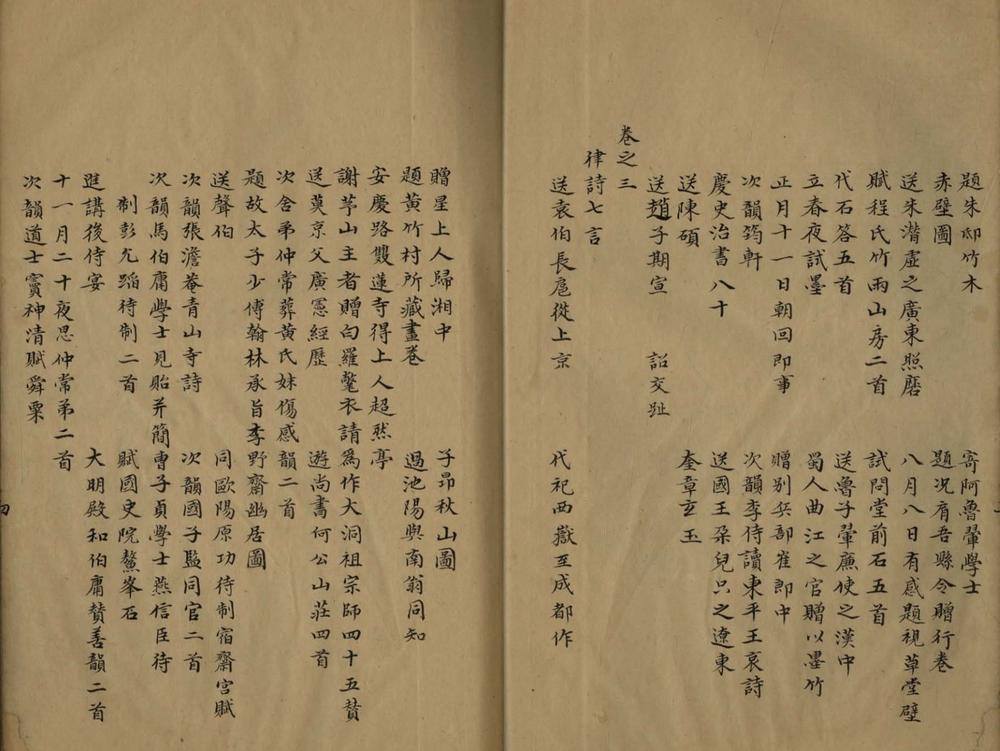 題朱邸竹木　寄阿魯翬學士
赤壁圖　題况肩吾縣令贈行卷
送朱潛虛之廣東照磨　八月八日有感題視草堂壁
賦程氏竹雨山房二首　試問堂前石五首
代石答五首　送魯子翬廉使之漢中
立春夜試墨　蜀人曲江之官贈以墨竹
正月十一日朝回即事　贈別兵部崔郎中
次韻筠軒　次韻李侍讀東平王哀詩
慶史治書八十　送國王朶兒只之遼東
送陳碩　奎章玄玉
送趙子期宣　詔交趾
卷之三
律詩七言
送袁伯長扈從上京　代祀西嶽至成都作
贈星上人歸湘中　子昂秋山圖
題黄竹村所藏畫卷　過池陽與南翁同知
安慶路雙蓮寺得上人超然亭
謝茅山主者贈白羅氅衣請爲作大洞祖宗師四十五贊
送莫京父廣憲經歷　遊尚書何公山莊四首
次舍弟仲常葬黄氏妹傷感韻二首
題故太子少傅翰林承旨李野齋幽居圖
送聲伯　同歐陽原功待制宿齋宮賦
次韻張澹菴青山寺詩　次韻國子監同官二首
次韻馬伯庸學士見貽并簡曹子貞學士燕信臣待
制彭允蹈待制二首　賦國史院鰲峯石
進講後侍宴　大明殿和伯庸贊善韻二首
十一月二十夜思仲常弟二首
次韻道士竇神清賦舜粟